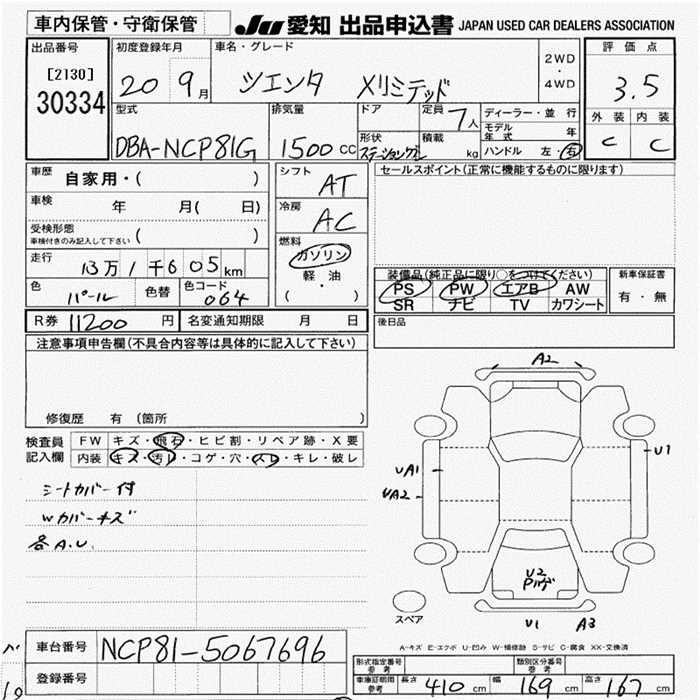 車内保管・守衛保管 JU 愛知 出品申込書 JAPAN USED CAR DEALERS ASSOCIATION
出品番号 初度登録年月 車名・グレード 2WD・4WD 評価点
[2130] 30334 20 9月 シエンタ Xリミテッド 3.5
型式 排気量 ドア 定員 7人 ディーラー・並行 外装 内装
モデル年式 年
DBA-NCP81G 1500CC 形状 積載 kg ハンドル 左・右 C C
車歴 自家用・( ) シフト AT セールスポイント(正常に機能するものに限ります)
車検 年 月( 日) 冷房 AC
受検形態 車検付きのみ記入して下さい ( )
燃料 ガソリン 軽・油 ( )
走行 13万1千605km 装備品(純正品に限り○をつけてください) 新車保証書
色 パール 色替 色コード 064 PS PW エアB AW 有・無
SR ナビ TV カワシート
R券 11200円 名変通知期限 月 日 後日品
注意事項申告欄(不具合内容等は具体的に記入して下さい)
A2
修復歴 有 (箇所 )
検査員記入欄 FW キズ・飛石・ヒビ割・リペア跡・X要 U1
内装 キズ・汚レ・コゲ・穴・スレ・キレ・破レ UA1
UA2
シートカバー付
Wカバーキズ
各A.U.
U2
スペア U1 A3
A-キズ E-エクボ U-凹み W-補修跡 S-サビ C-腐食 XX-交換済
車台番号 NCP81-5067696
形式指定番号 参考 類別区分番号 参考
登録番号 車庫証明用 参考 長さ 410cm 幅 169cm 高さ 167cm